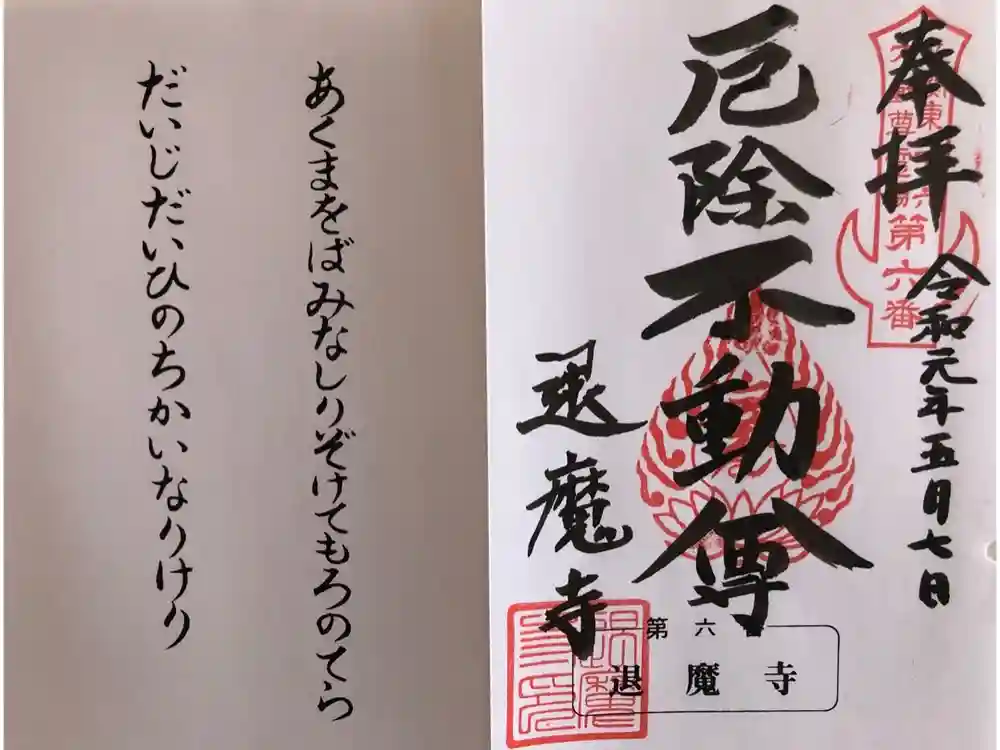 奉拝
令和元年五月七日
第六番
厄除不動尊
退魔寺
第六
退魔寺
あくまをばみなしりぞけてもろのてら
だいじだいひのちかいなりけり